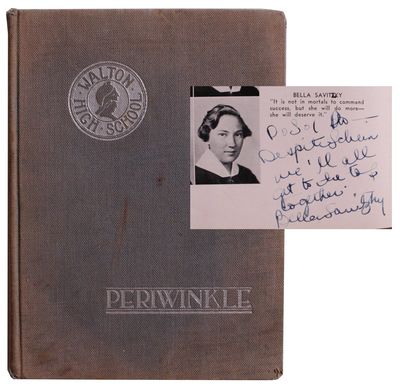 WALTON
HIGH SCHOOL
BELLA SAVITZKY
"It is not in mortals to command
success, but she will do more—
she will deserve it."
Despite
we'll all
get to
together!
Bella Savitzky
PERIWINKLE